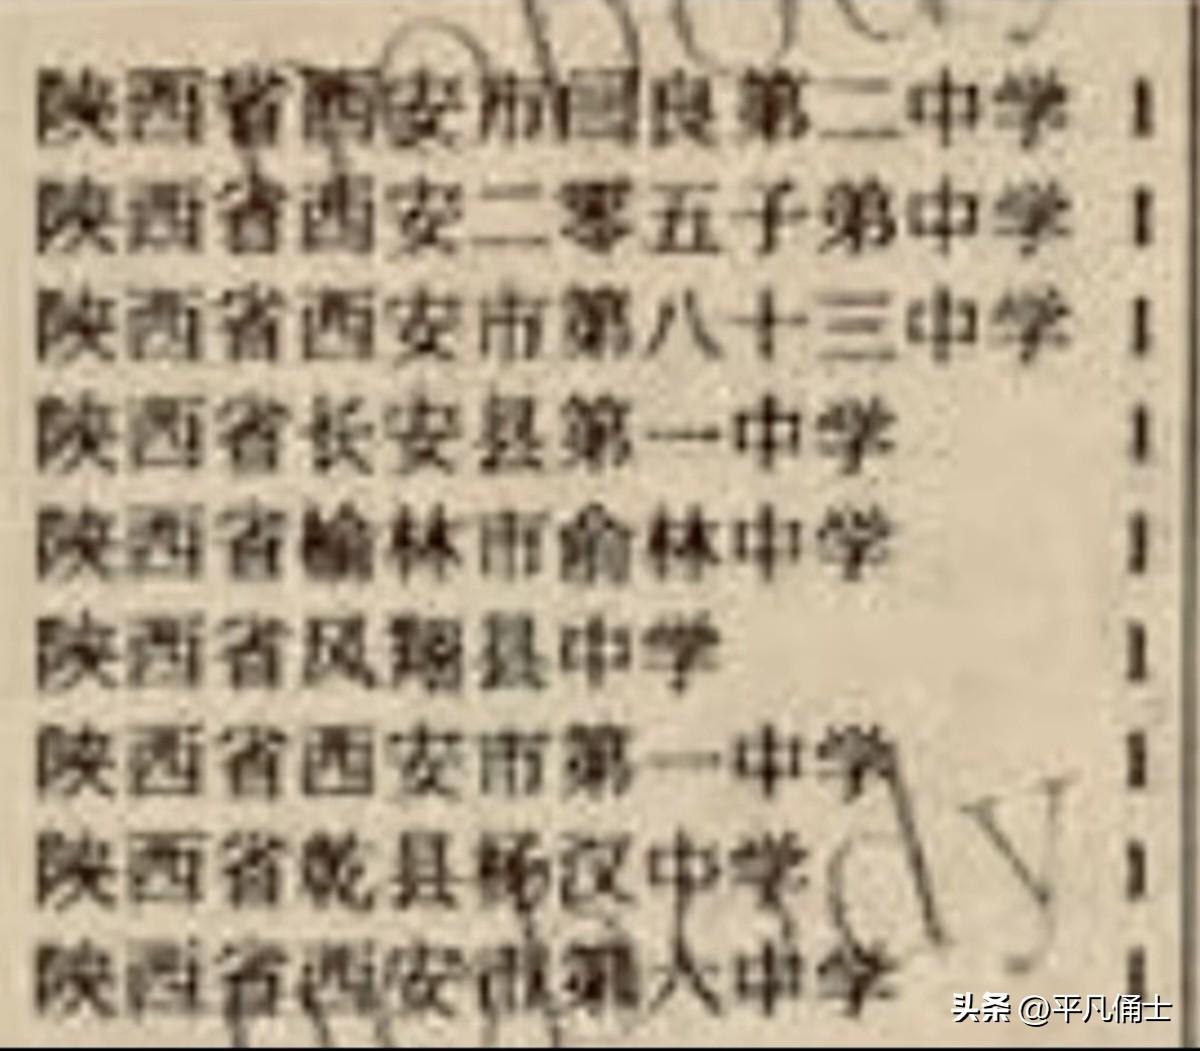 陕西省西安市阎良第二中学 1
陕西省西安二零五子弟中学 1
陕西省西安市第八十三中学 1
陕西省长安县第一中学 1
陕西省榆林市俞林中学 1
陕西省凤翔县中学 1
陕西省西安市第一中学 1
陕西省乾县杨汉中学 1
陕西省西安市第中学 1
头条 @平凡俑士